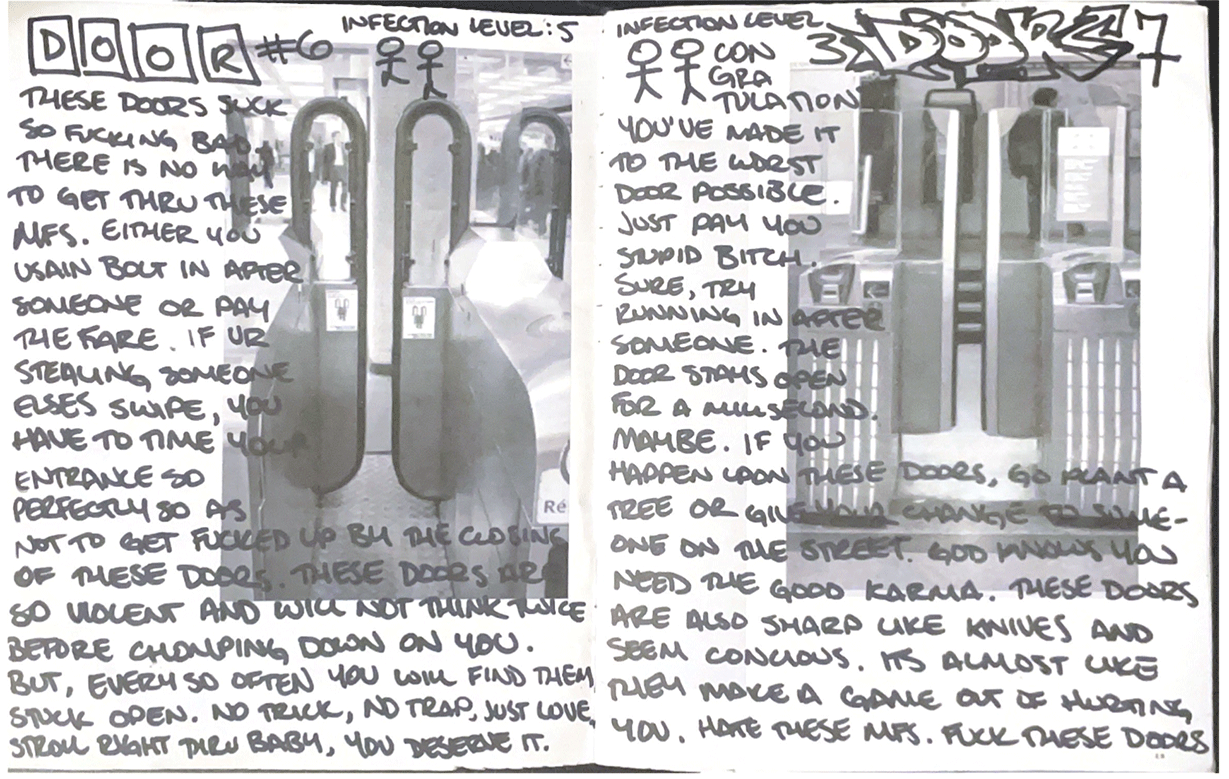 DOOR #6
INFECTION LEVEL: 5
THESE DOORS SUCK
SO FUCKING BAD.
THERE IS NO WAY
TO GET THRU THESE
MFS. EITHER YOU
USAIN BOLT IN AFTER
SOMEONE OR PAY
THE FARE. IF UR
STEALING SOMEONE
ELSES SWIPE, YOU
HAVE TO TIME YOUR
ENTRANCE SO
PERFECTLY SO AS
NOT TO GET FUCKED UP BY THE CLOSING
OF THESE DOORS. THESE DOORS ARE
SO VIOLENT AND WILL NOT THINK TWICE
BEFORE CHOMPING DOWN ON YOU.
BUT, EVERY SO OFTEN YOU WILL FIND THEM
STUCK OPEN. NO TRICK, NO TRAP, JUST LOVE,
STROLL RIGHT THRU BABY, YOU DESERVE IT.
Ré
INFECTION LEVEL
3
DOOR 7
CON
GRA
TULATION
YOU'VE MADE IT
TO THE WORST
DOOR POSSIBLE.
JUST PAY YOU
STUPID BITCH.
SURE, TRY
RUNNING IN AFTER
SOMEONE. THE
DOOR STAYS OPEN
FOR A MILLISECOND.
MAYBE. IF YOU
HAPPEN UPON THESE DOORS, GO PLANT A
TREE OR GIVE YOUR CHANGE TO SOME-
ONE ON THE STREET. GOD KNOWS YOU
NEED THE GOOD KARMA. THESE DOORS
ARE ALSO SHARP LIKE KNIVES AND
SEEM CONCIOUS. ITS ALMOST LIKE
THEY MAKE A GAME OUT OF HURTING
YOU. HATE THESE MFS. FUCK THESE DOORS